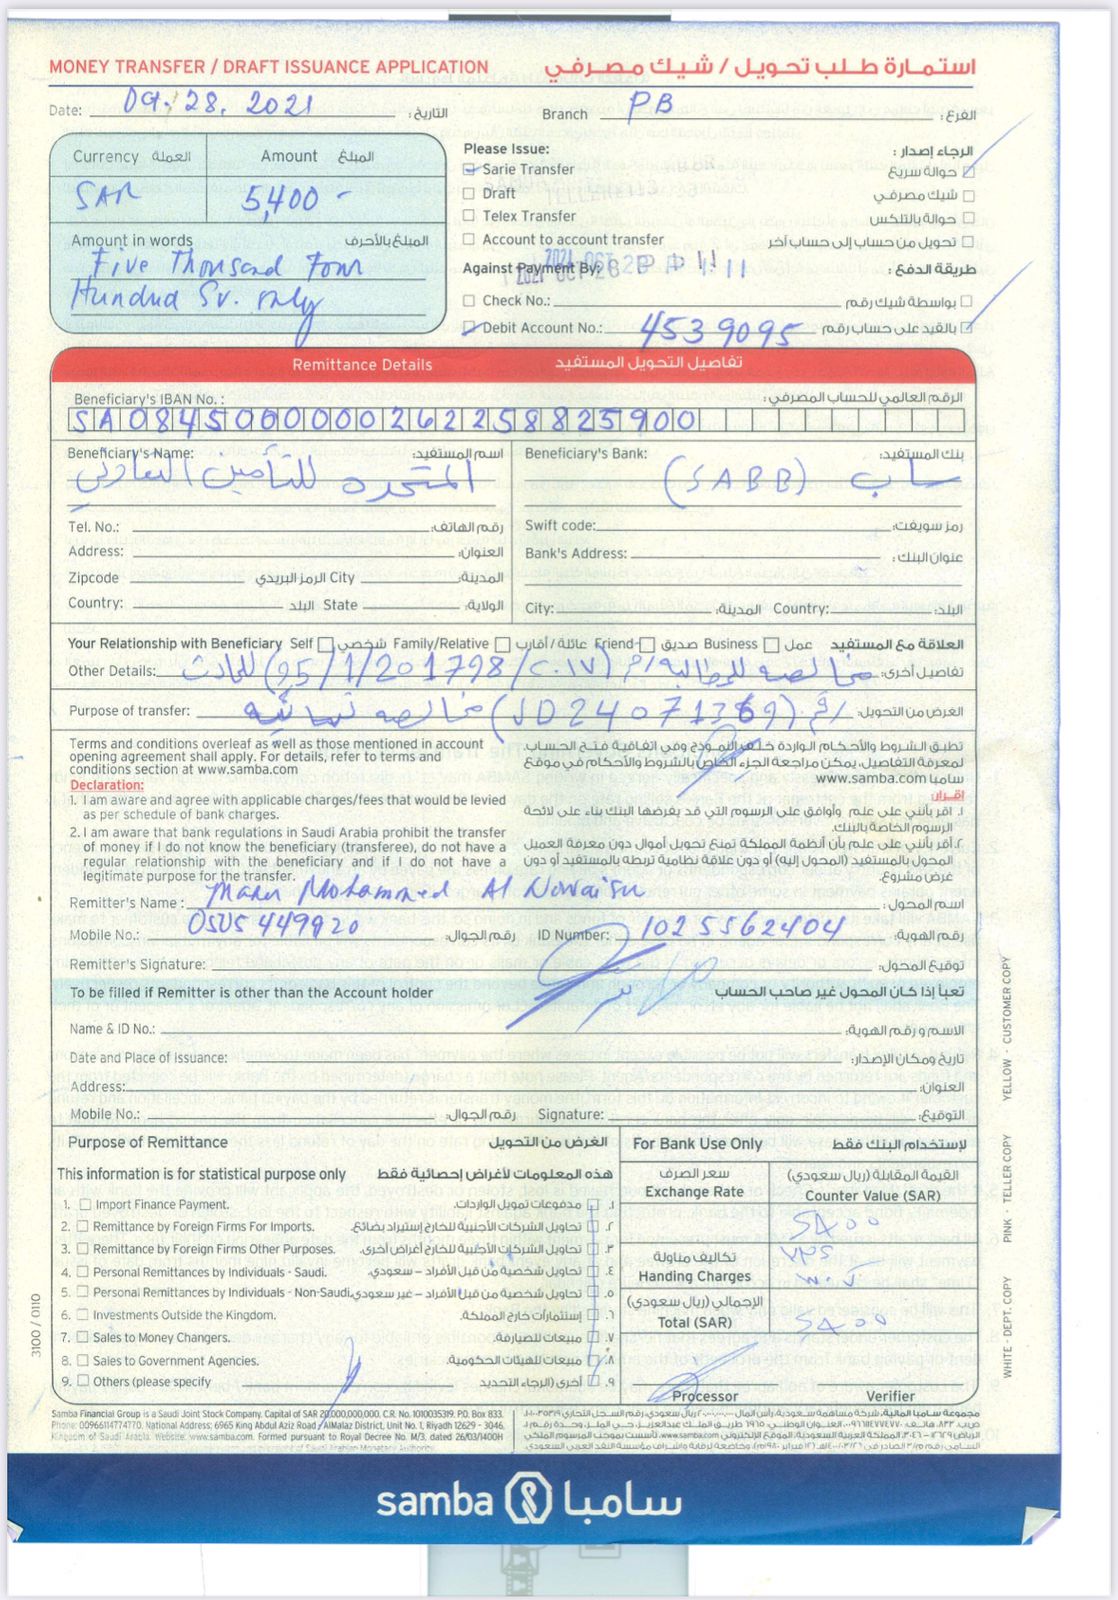 MONEY TRANSFER / DRAFT ISSUANCE APPLICATION استمارة طلب تحويل / شيك مصرفي
Date: Oct. 28. 2021 التاريخ: Branch PB الفرع:
Currency العملة Amount المبلغ
SAR 5,400 -
Amount in words المبلغ بالأحرف
Five Thousand Four
Hundred Sr. only
Please Issue: الرجاء إصدار:
Sarie Transfer حوالة سريع
Draft شيك مصرفي
Telex Transfer حوالة بالتلكس
Account to account transfer تحويل من حساب إلى حساب آخر
Against Payment By: طريقة الدفع:
Check No.: بواسطة شيك رقم
Debit Account No.: 4539095 بالقيد على حساب رقم
Remittance Details تفاصيل التحويل المستفيد
Beneficiary's IBAN No.: الرقم العالمي للحساب المصرفي:
SA0845000000262258825900
Beneficiary's Name: اسم المستفيد: Beneficiary's Bank: بنك المستفيد:
المتحده للتأمين التعاوني ساب (SABB)
Tel. No.: رقم الهاتف: Swift code: رمز سويفت:
Address: العنوان: Bank's Address: عنوان البنك:
Zipcode الرمز البريدي City المدينة:
Country: البلد State الولاية: City: المدينة: Country: البلد:
Your Relationship with Beneficiary Self شخصي Family/Relative عائلة / أقارب Friend صديق Business عمل العلاقة مع المستفيد
Other Details: مخالصه للمطالبه رقم (95/1/201798/٢٠١٧) للحادث تفاصيل أخرى:
Purpose of transfer: رقم (JD24071369) مخالصه نهائيه الغرض من التحويل:
Terms and conditions overleaf as well as those mentioned in account
opening agreement shall apply. For details, refer to terms and
conditions section at www.samba.com
تطبق الشروط والأحكام الواردة خلف النموذج وفي اتفاقية فتح الحساب.
لمعرفة التفاصيل، يمكن مراجعة الجزء الخاص بالشروط والأحكام في موقع
سامبا www.samba.com
Declaration:
1. I am aware and agree with applicable charges/fees that would be levied
as per schedule of bank charges.
2. I am aware that bank regulations in Saudi Arabia prohibit the transfer
of money if I do not know the beneficiary (transferee), do not have a
regular relationship with the beneficiary and if I do not have a
legitimate purpose for the transfer.
إقرار:
١. أقر بأنني على علم وأوافق على الرسوم التي قد يفرضها البنك بناء على لائحة
الرسوم الخاصة بالبنك.
٢. أقر بأنني على علم بأن أنظمة المملكة تمنع تحويل أموال دون معرفة العميل
المحول بالمستفيد (المحول إليه) أو دون علاقة نظامية تربطه بالمستفيد أو دون
غرض مشروع.
Remitter's Name: Maher Mohammed Al Nowaiser اسم المحول:
Mobile No.: 0505449920 رقم الجوال: ID Number: 1025562404 رقم الهوية:
Remitter's Signature: توقيع المحول:
To be filled if Remitter is other than the Account holder تعبأ إذا كان المحول غير صاحب الحساب
Name & ID No.: الاسم و رقم الهوية:
Date and Place of issuance: تاريخ ومكان الإصدار:
Address: العنوان:
Mobile No.: رقم الجوال: Signature: التوقيع:
Purpose of Remittance الغرض من التحويل
This information is for statistical purpose only هذه المعلومات لأغراض إحصائية فقط
1. Import Finance Payment. ١. مدفوعات تمويل الواردات.
2. Remittance by Foreign Firms For Imports. ٢. تحاويل الشركات الأجنبية للخارج إستيراد بضائع.
3. Remittance by Foreign Firms Other Purposes. ٣. تحاويل الشركات الأجنبية للخارج أغراض أخرى.
4. Personal Remittances by Individuals - Saudi. ٤. تحاويل شخصية من قبل الأفراد – سعودي.
5. Personal Remittances by Individuals - Non-Saudi. ٥. تحاويل شخصية من قبل الأفراد – غير سعودي.
6. Investments Outside the Kingdom. ٦. إستثمارات خارج المملكة.
7. Sales to Money Changers. ٧. مبيعات للصيارفة.
8. Sales to Government Agencies. ٨. مبيعات للهيئات الحكومية.
9. Others (please specify ٩. أخرى (الرجاء التحديد
For Bank Use Only لإستخدام البنك فقط
سعر الصرف القيمة المقابلة (ريال سعودي)
Exchange Rate Counter Value (SAR)
5400
تكاليف مناولة
Handing Charges
الإجمالي (ريال سعودي)
Total (SAR) 5400
Processor Verifier
3100 / 0110
WHITE - DEPT. COPY PINK - TELLER COPY YELLOW - CUSTOMER COPY
Samba Financial Group is a Saudi Joint Stock Company. Capital of SAR 20,000,000,000, C.R. No. 1010035319. P.O. Box 833.
Phone: 00966114774770. National Address: 6965 King Abdul Aziz Road / AlMalaz District, Unit No. 1, Riyadh 12629 - 3046,
Kingdom of Saudi Arabia. Website: www.samba.com. Formed pursuant to Royal Decree No. M/3, dated 26/03/1400H
samba سامبا